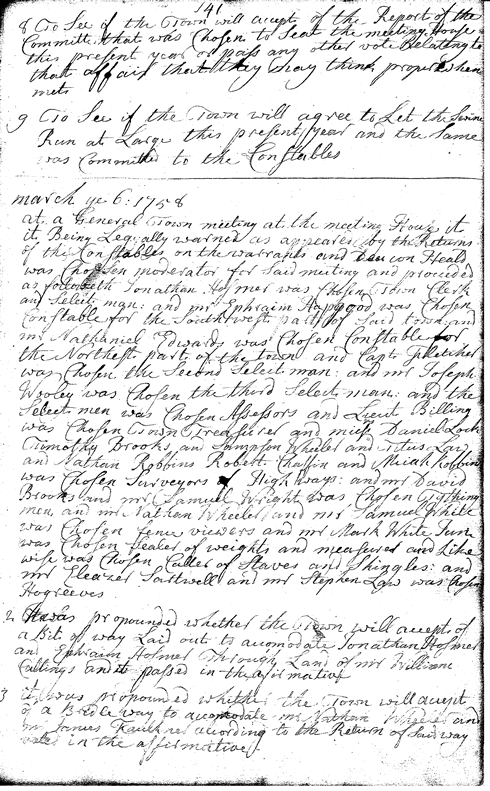 141
8 To See if the Town will accept of the Report of the
Committe that was Chosen to Seat the meeting House
this present year or pass any other vote Relating to
that affair that they may think proper when
met
9 To See if the Town will agree to Let the Swine
Run at Large this present year and the Same
was Committed to the Constables
march ye 6: 1758
at a General Town meeting at the meeting House it
it Being Legually warned as appeares by the Returns
of the Constables on the warrants and Deacon Heald
was Chosen moderator for Said meeting and proceeded
as followeth Jonathan Hosmer was Chosen Town Clerk
an Select man: and mr Ephraim Hapgood was Chosen
Constable for the Southwest part of Said town and
mr Nathaniel Edwards was Chosen Constable for
the Northest part of the town and Capt Fletcher
was Chosen the Second Select man: and mr Joseph
Wooley was Chosen the third Select man: and the
Select men was Chosen Assessors and Lieut Billing
was Chosen Town Treasurer and Daniel
Timothy Brooks and Sampson Wheeler and Titus Law
and Nathan Robbins Robert Chaffin and Micah
was Chosen Surveyors of Highways: and mr David
Brooks and mr Samuel Wright was Chosen Tything
men and mr Nathan Wheeler and mr Samuel White
was Chosen fence viewers and mr Mark White Jun
was Chosen Sealer of weights and measures and Like
wise was Chosen Culler of Staves and Shingles: and
mr Eleazer Sartwell and mr Stephen Law was Chosen
Hogreeves
2 It was propounded whether the Town will accept of
a Bit of way Laid out to acomodate Jonathan Hosmer
an Ephraim Hosmer Through Land of mr William
Cuttings and it passed in the affirmative
3 it was propounded whether the Town will accept
of a Bridle way to acomodate mr Nathan Wheeler and
mr James Faulkner acording to the Return of Said way
voted in the affirmative